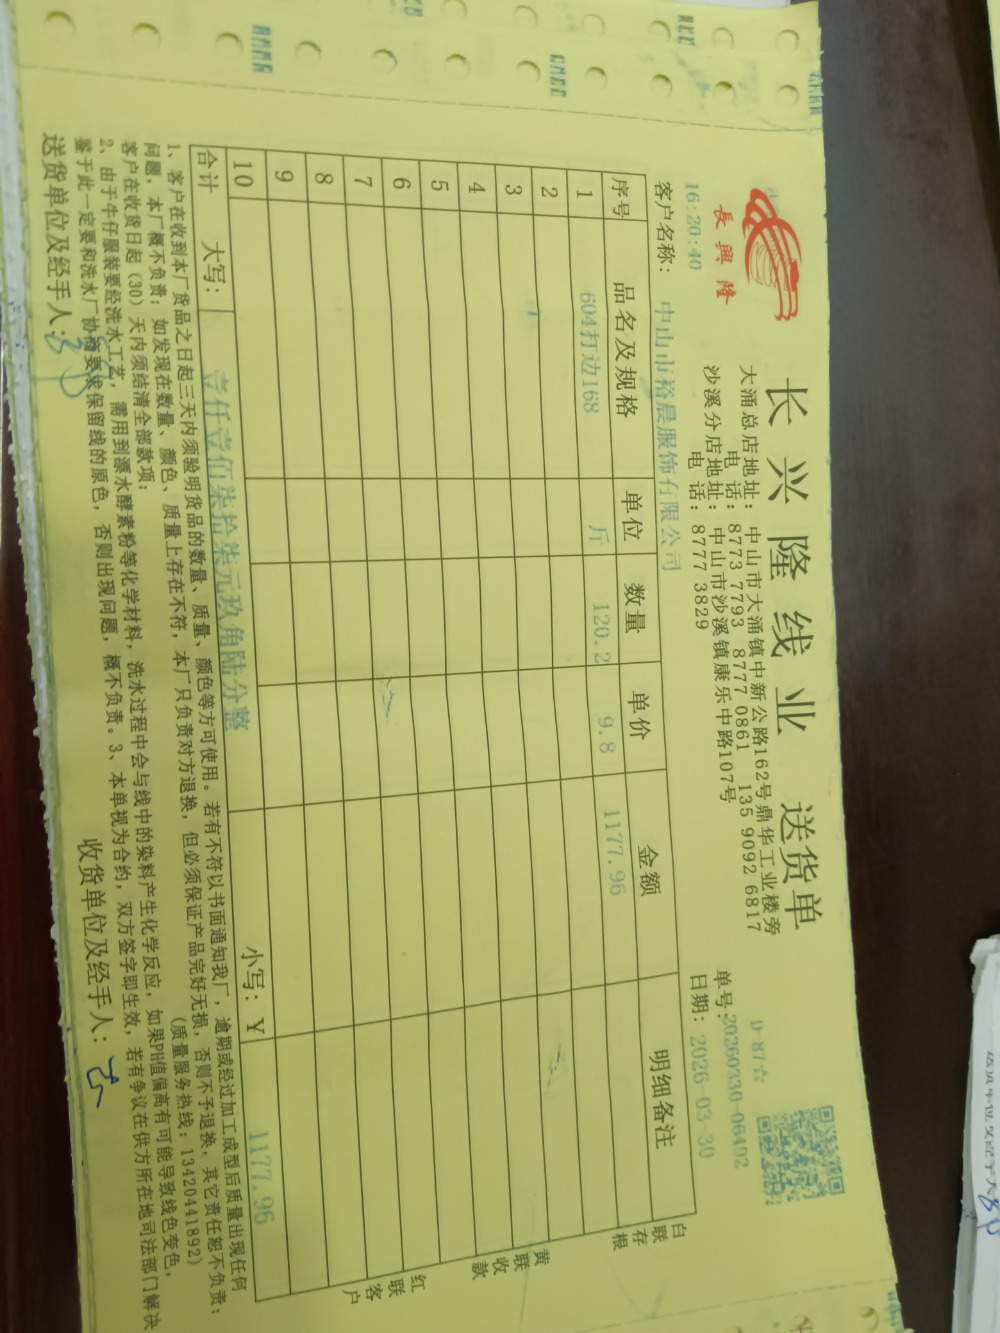 长兴隆线业 送货单
長興隆
D-87☆
大涌总店地址：中山市大涌镇中新公路162号鼎华工业楼旁
电 话：8773 7793 8777 0861 135 9092 6817
沙溪分店地址：中山市沙溪镇康乐中路107号
电 话：8777 3829
单号：20260330-06492
16:20:40
日期：2026-03-30
客户名称：中山市裕晨服饰有限公司
序号 品名及规格 单位 数量 单价 金额 明细备注
1 604打边168 斤 120.2 9.8 1177.96
2
3
4
5
6
7
8
9
10
合计 大写：壹仟壹佰柒拾柒元玖角陆分整 小写：￥ 1177.96
白联存根
黄联收款
红联客户
1、客户在收到本厂货品之日起三天内须验明货品的数量、质量、颜色等方可使用。若有不符以书面通知我厂，逾期或经过加工成型后质量出现任何
问题，本厂概不负责；如发现在数量、颜色、质量上存在不符，本厂只负责对方退换，但必须保证产品完好无损，否则不予退换，其它责任恕不负责；
客户在收货日起（30）天内须结清全部款项； （质量服务热线：13420441892）
2、由于牛仔服装要经洗水工艺，需用到漂水酵素粉等化学材料，洗水过程中会与线中的染料产生化学反应，如果PH值偏高有可能导致线色变色，
鉴于此一定要和洗水厂协商要求保留线的原色，否则出现问题，概不负责。3、本单视为合约，双方签字即生效，若有争议在供方所在地司法部门解决
送货单位及经手人： 收货单位及经手人：